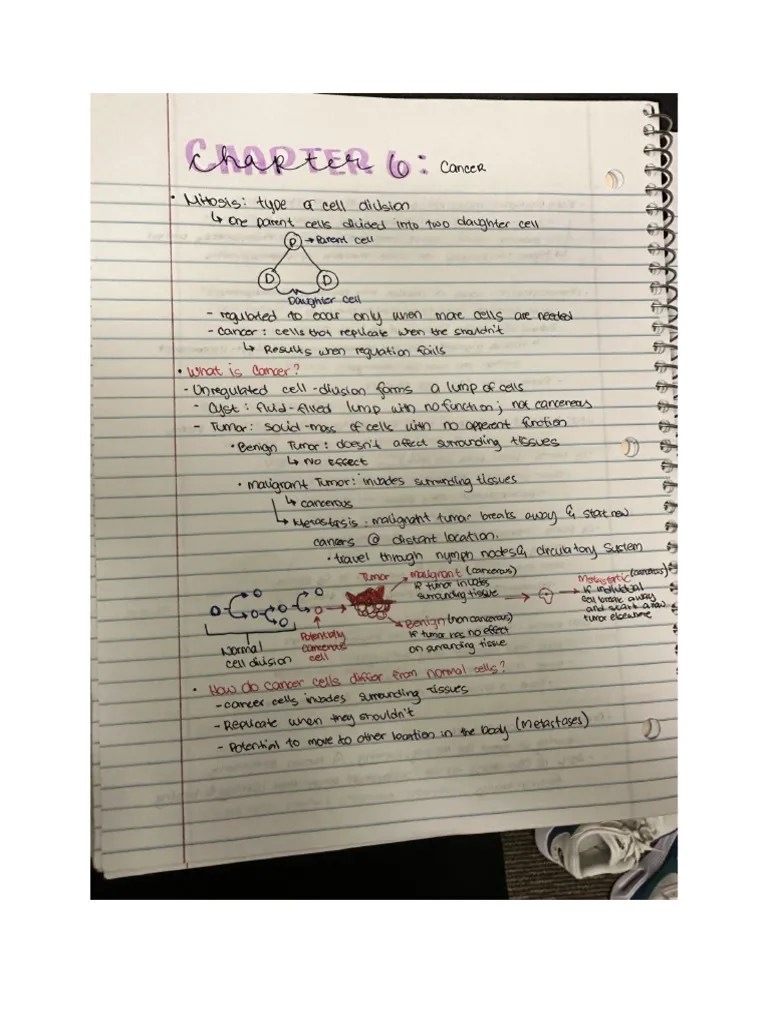 CHAPTER 6: Cancer
• Mitosis: type of cell division
↳ One parent cells divided into two daughter cell
P → Parent cell
D D
Daughter cell
- regulated to occur only when more cells are needed
- cancer: cells that replicate when the shouldn't
↳ Results when regulation fails
• What is Cancer?
- Unregulated cell-division forms a lump of cells
- Cyst: fluid-filled lump with no function; not cancereous
- Tumor: solid-mass of cells with no apperent function
• Benign Tumor: doesn't affect surrounding tissues
↳ NO Effect
• malignant Tumor: invades surrounding tissues
↳ cancerous
↳ Metastasis: malignant tumor breaks away & start new
cancers @ distant location.
• travel through nymph nodes & circulatory system
Normal
cell division
Potentially
cancerous
cell
Tumor
Malignant (cancerous)
If tumor invades
surrounding tissue
Benign (non cancerous)
If tumor has no effect
on surranding tissue
Metastatic (cancerous)
If individual
cell break away
and start a new
tumor elsewhere
• How do cancer cells differ from normal cells?
- cancer cells invades surrounding tissues
- Replicate when they shouldn't
- Potential to move to other location in the body (metastases)